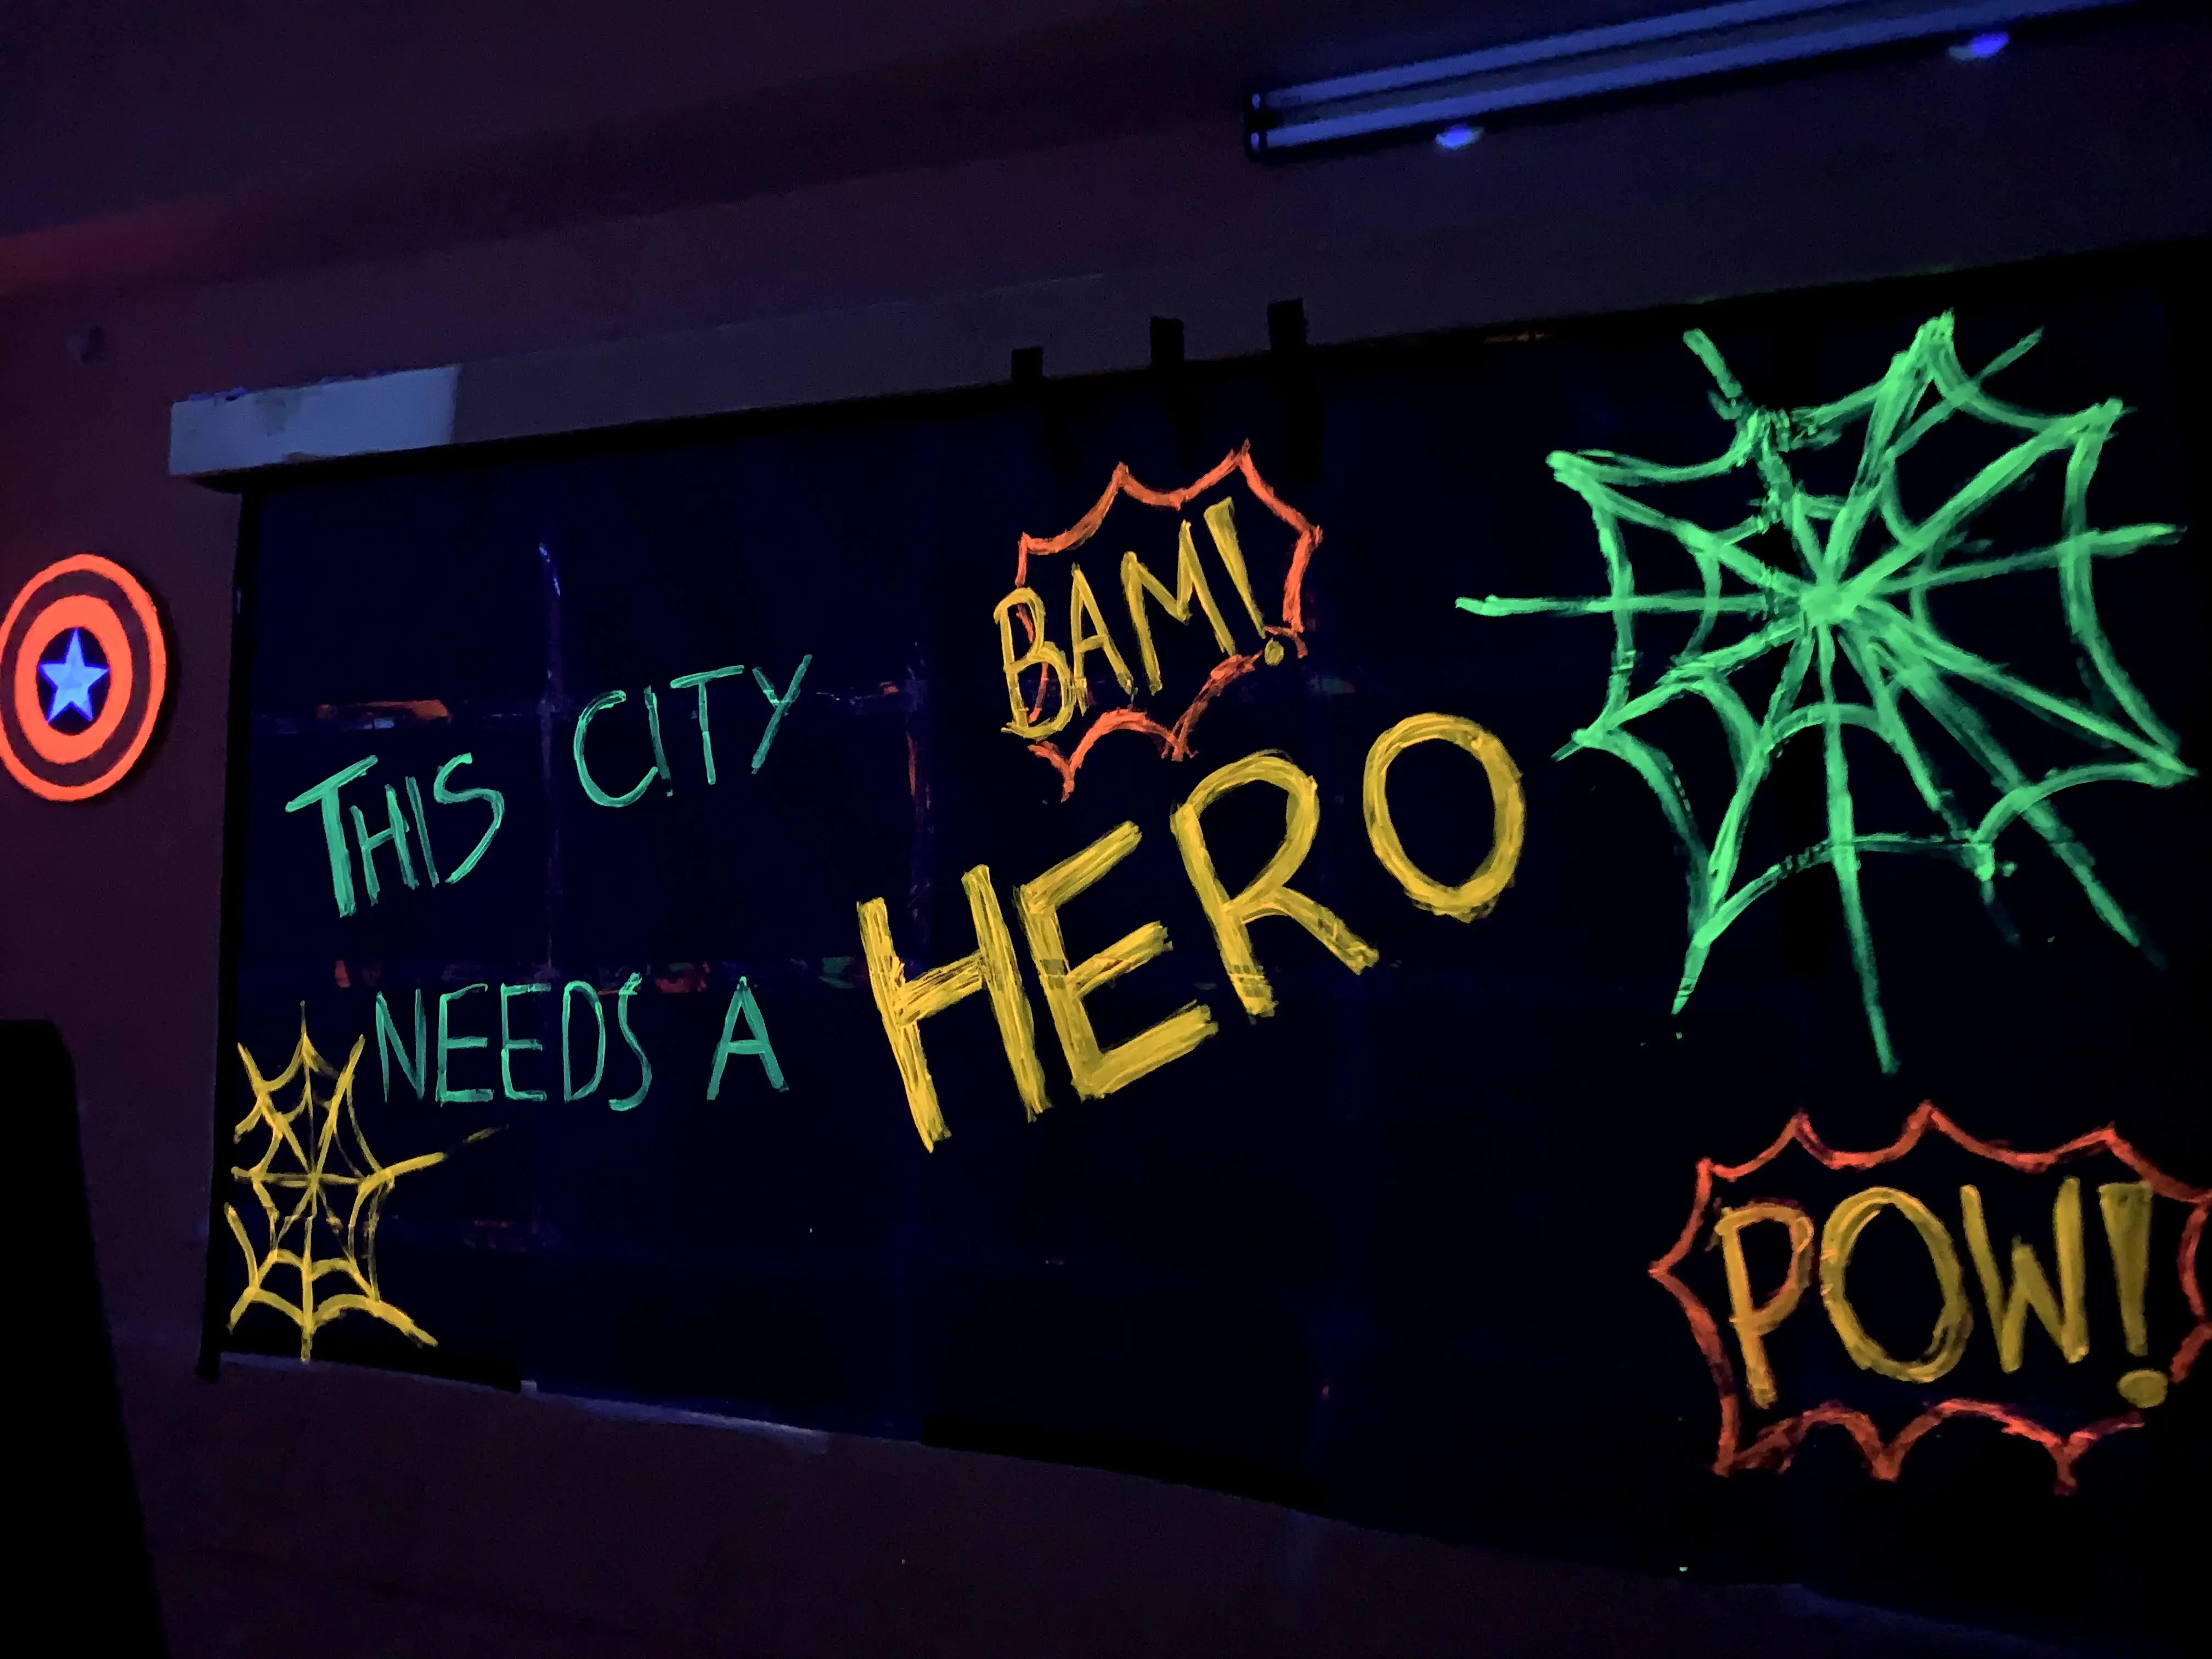 BAM!
THIS CITY
NEEDS A HERO
POW!